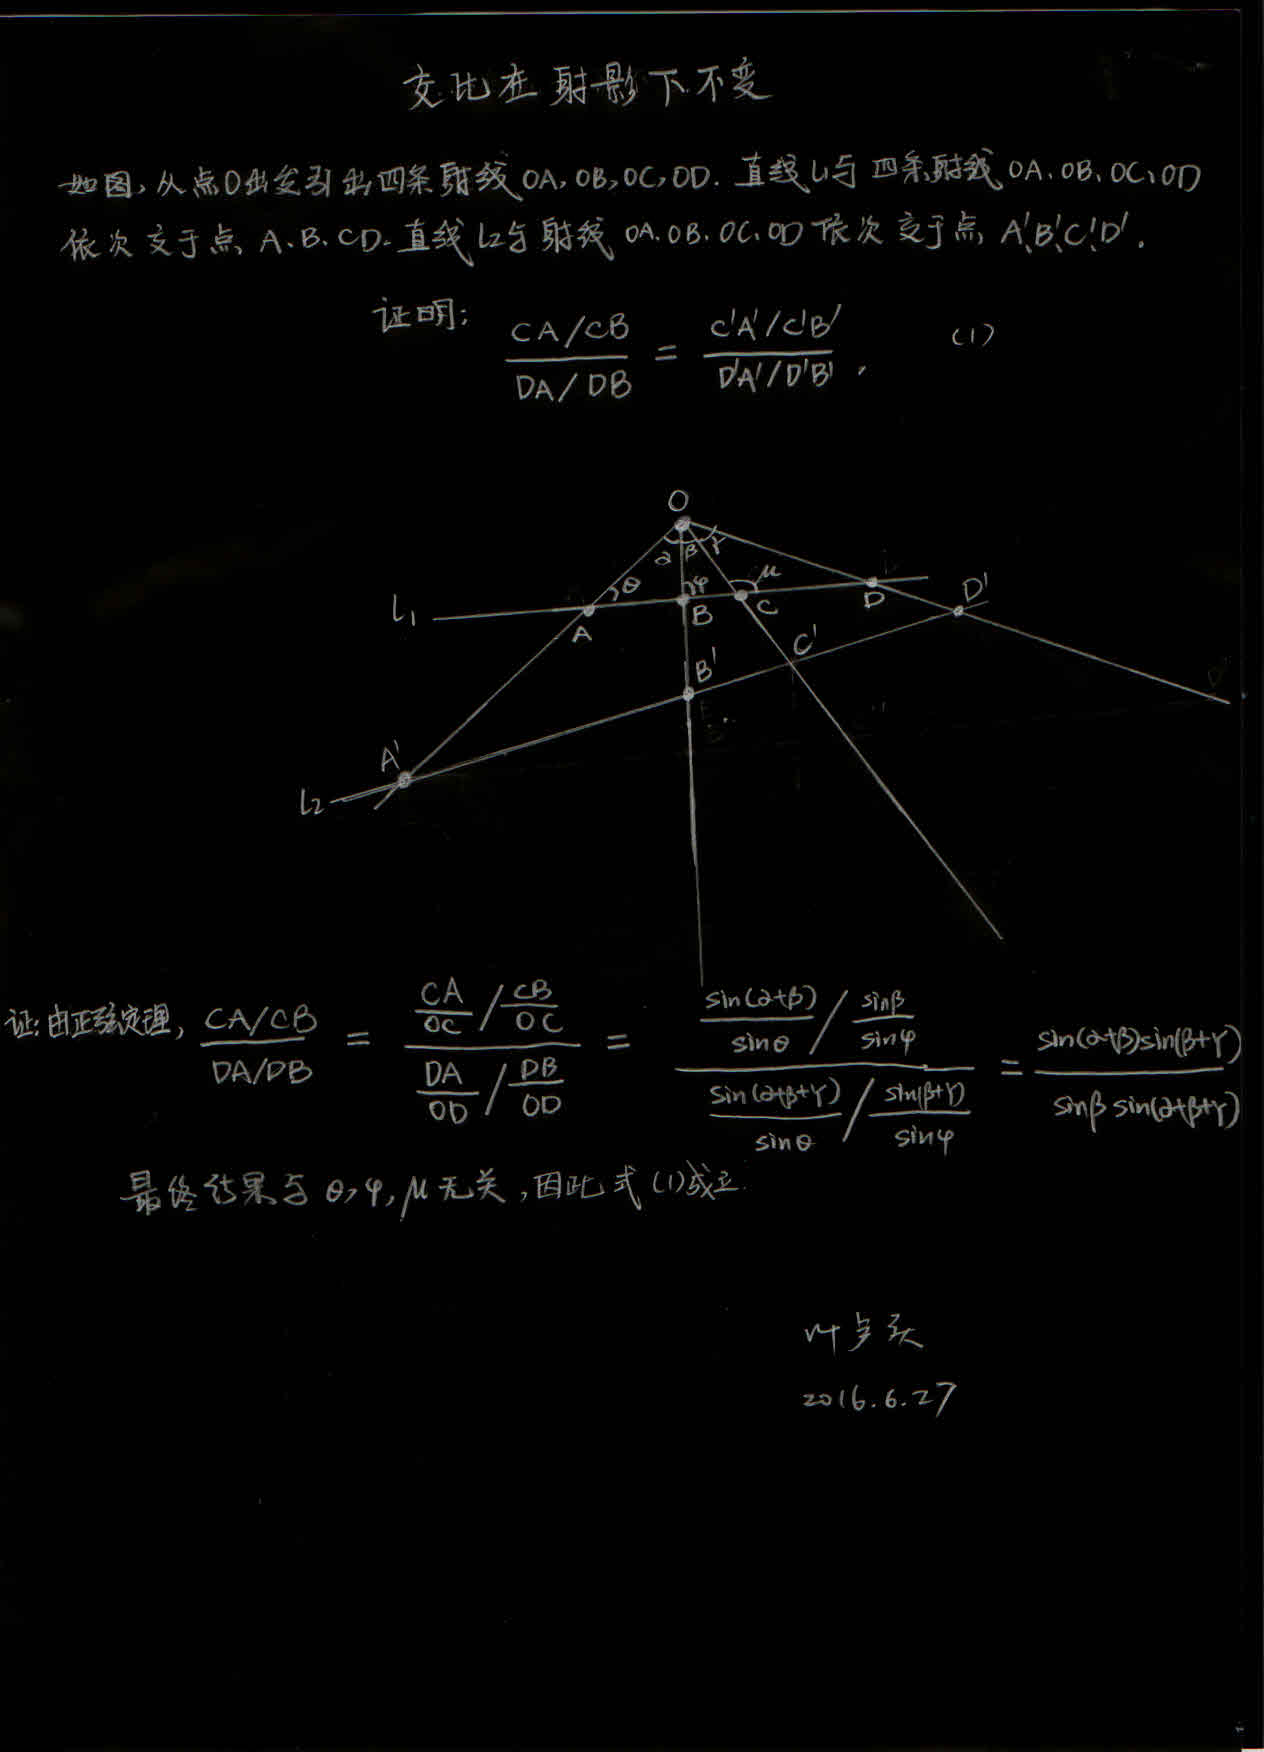 交比在射影下不变
如图,从点O出发引出四条射线OA,OB,OC,OD.直线L1与四条射线OA、OB、OC、OD
依次交于点A、B、CD.直线L2与射线OA.OB.OC.OD依次交于点A'、B'、C'、D'.
证明: (CA/CB)/(DA/DB) = (C'A'/C'B')/(D'A'/D'B'). (1)
O
α β γ
θ φ μ
L1 A B C D D'
B' C'
A'
L2
证:由正弦定理, (CA/CB)/(DA/DB) = (CA/OC / CB/OC)/(DA/OD / DB/OD) = (sin(α+β)/sinθ / sinβ/sinφ)/(sin(α+β+γ)/sinθ / sin(β+γ)/sinφ) = sin(α+β)sin(β+γ)/sinβ sin(α+β+γ)
最终结果与θ,φ,μ无关,因此式(1)成立.
叶卢庆
2016.6.27